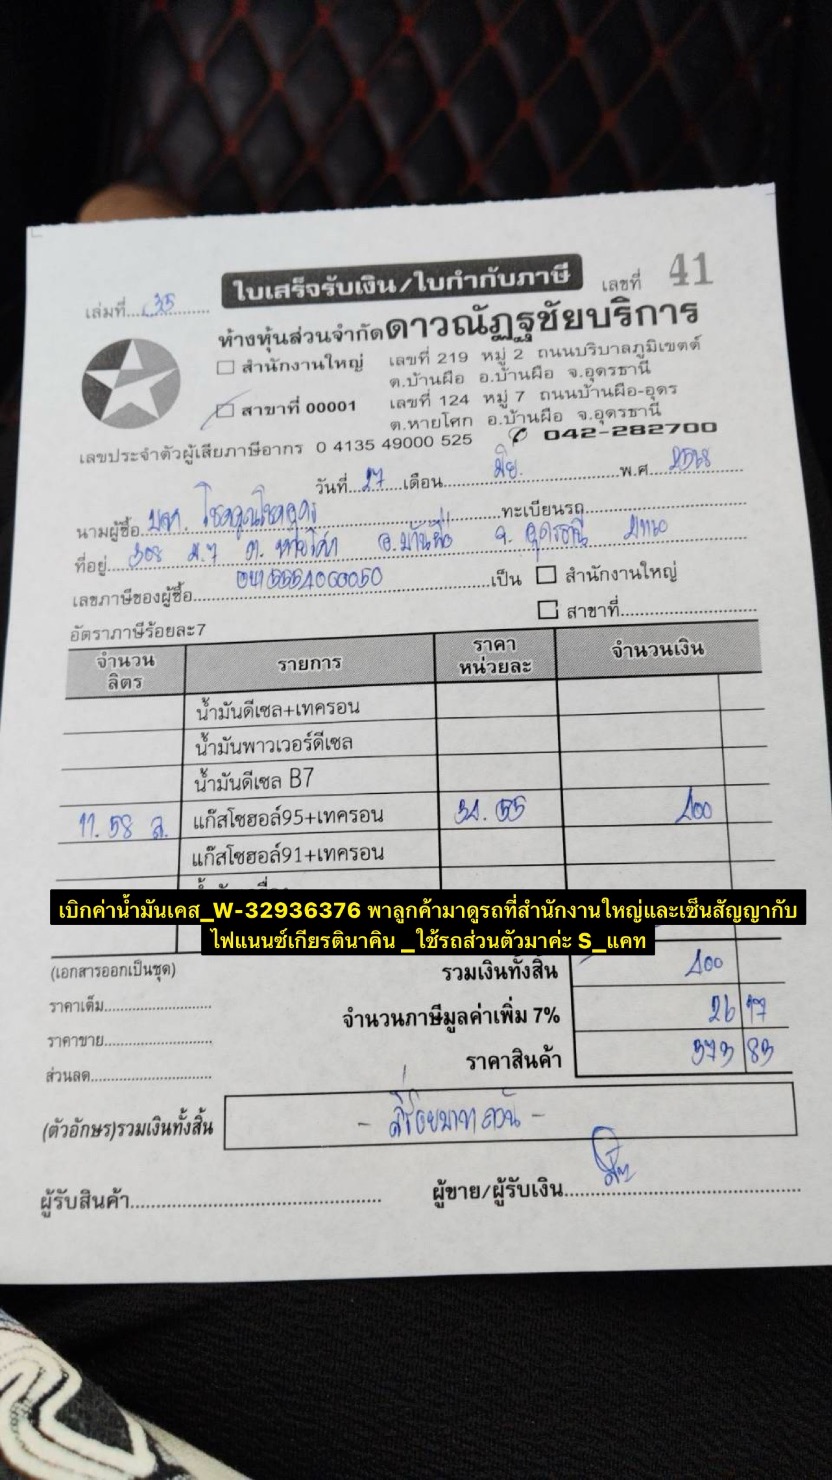 ใบเสร็จรับเงิน/ใบกำกับภาษี
เล่มที่ 35 เลขที่ 41
ห้างหุ้นส่วนจำกัดดาวณัฏฐชัยบริการ
สำนักงานใหญ่ เลขที่ 219 หมู่ 2 ถนนบริบาลภูมิเขตต์
ต.บ้านผือ อ.บ้านผือ จ.อุดรธานี
สาขาที่ 00001 เลขที่ 124 หมู่ 7 ถนนบ้านผือ-อุดร
ต.หายโศก อ.บ้านผือ จ.อุดรธานี
เลขประจำตัวผู้เสียภาษีอากร 0 4135 49000 525 042-282700
วันที่ 27 เดือน มิย. พ.ศ. 2568
นามผู้ซื้อ บจก. ทะเบียนรถ
ที่อยู่ 308 ม.7 ต. หายโศก อ.บ้านผือ จ. อุดรธานี
เลขภาษีของผู้ซื้อ เป็น สำนักงานใหญ่
สาขาที่
อัตราภาษีร้อยละ7
จำนวนลิตร รายการ ราคาหน่วยละ จำนวนเงิน
น้ำมันดีเซล+เทครอน
น้ำมันพาวเวอร์ดีเซล
น้ำมันดีเซล B7
11.58 ล. แก๊สโซฮอล์95+เทครอน 34.55 400
แก๊สโซฮอล์91+เทครอน
เบิกค่าน้ำมันเคส_W-32936376 พาลูกค้ามาดูรถที่สำนักงานใหญ่และเซ็นสัญญากับ
ไฟแนนซ์เกียรตินาคิน _ใช้รถส่วนตัวมาค่ะ S_แคท
(เอกสารออกเป็นชุด) รวมเงินทั้งสิ้น 400
ราคาเต็ม จำนวนภาษีมูลค่าเพิ่ม 7% 26 17
ราคาขาย ราคาสินค้า 373 83
ส่วนลด
(ตัวอักษร)รวมเงินทั้งสิ้น - สี่ร้อยบาทถ้วน -
ผู้รับสินค้า ผู้ขาย/ผู้รับเงิน